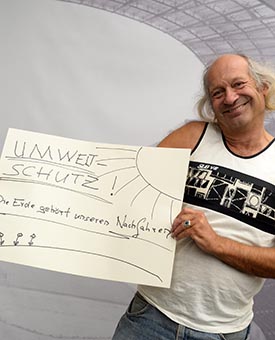 UMWELT-
SCHUTZ!
Die Erde gehört unseren Nachfahren